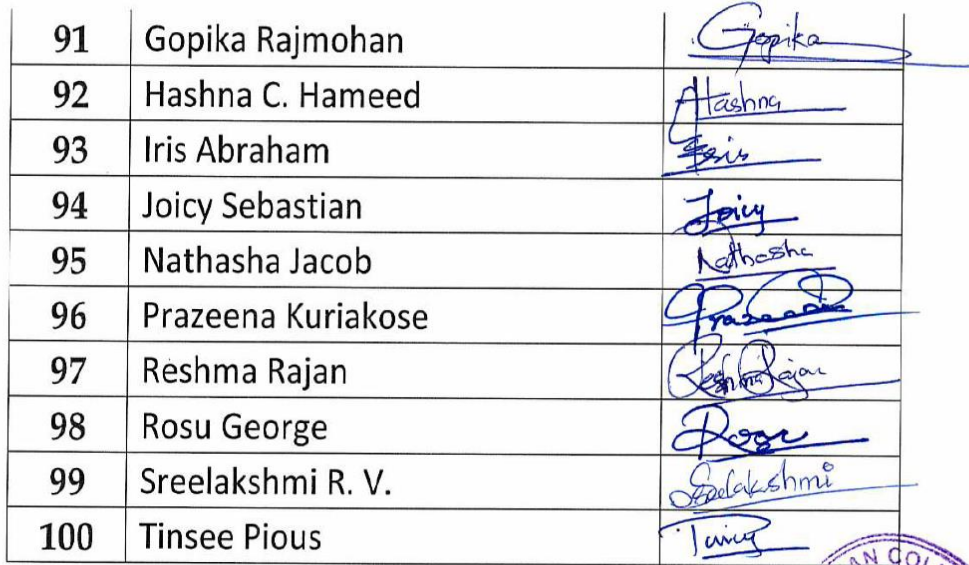 91 Gopika Rajmohan Gopika
92 Hashna C. Hameed Hashna
93 Iris Abraham Iris
94 Joicy Sebastian Joicy
95 Nathasha Jacob Nathasha
96 Prazeena Kuriakose Prazeena
97 Reshma Rajan Reshma Rajan
98 Rosu George Rosu
99 Sreelakshmi R. V. Sreelakshmi
100 Tinsee Pious
AN COL